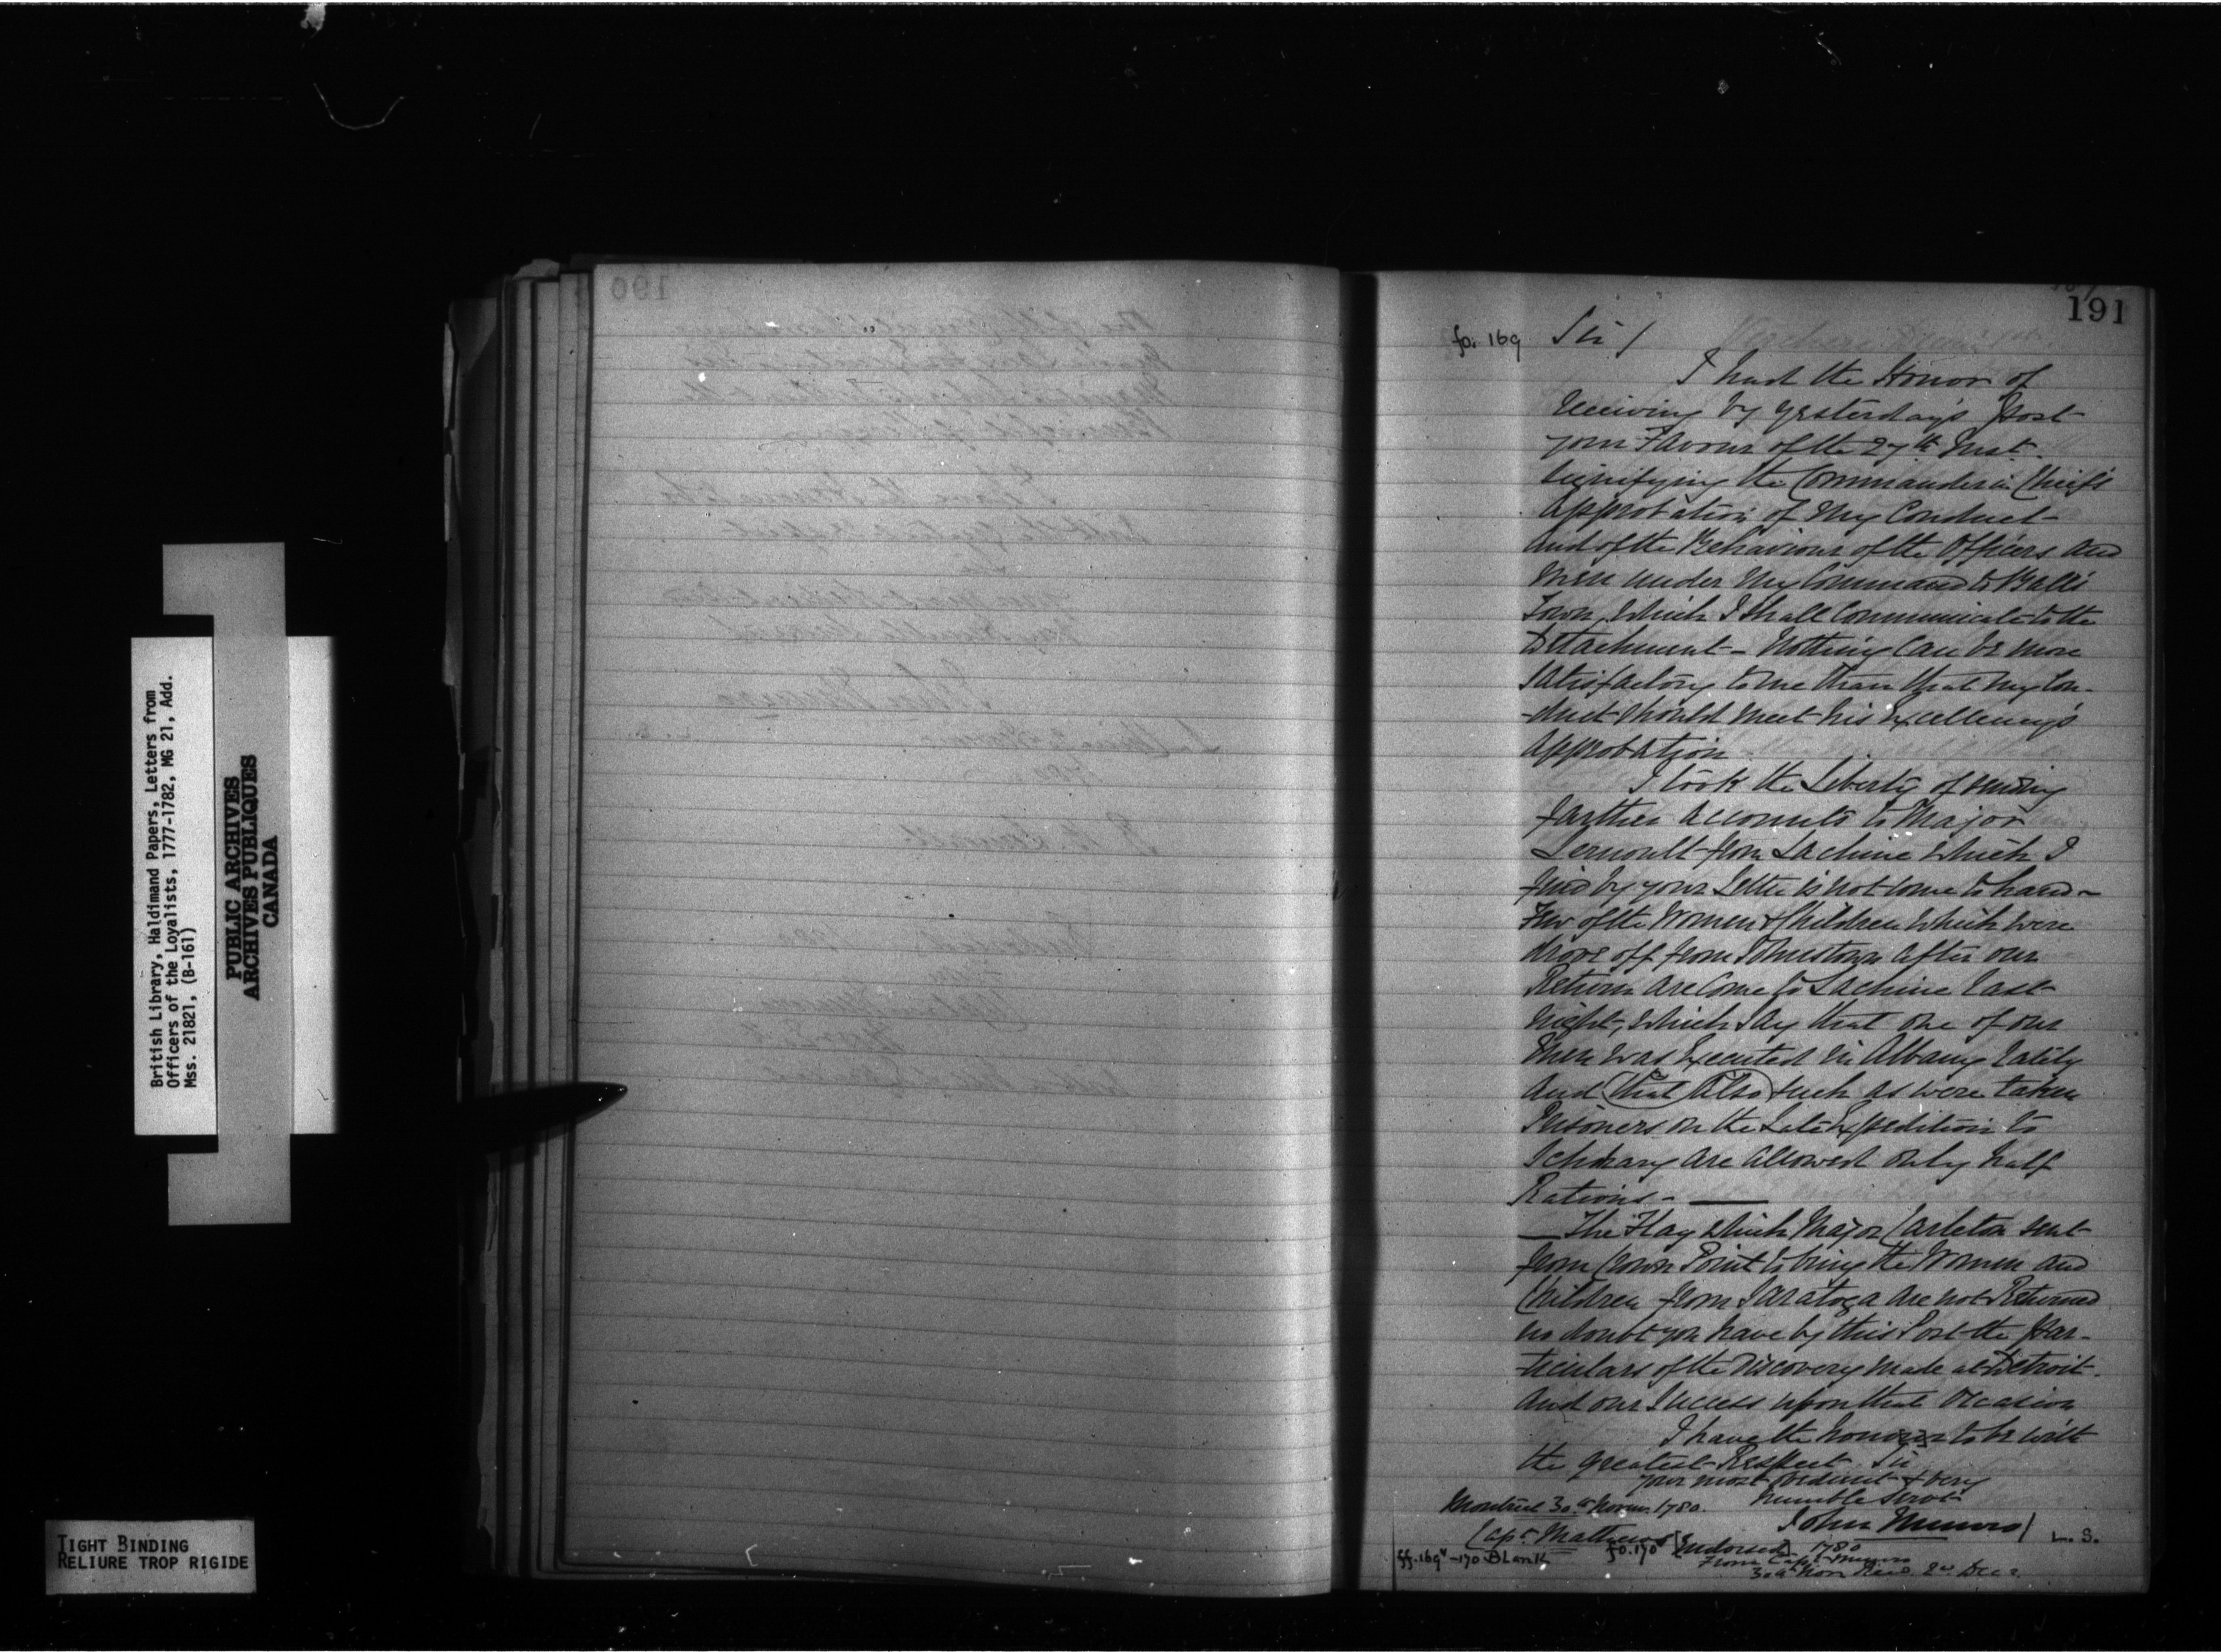 British Library, Haldimand Papers, Letters from
Officers of the Loyalists, 1777-1782, MG 21, Add.
Mss. 21821, (B-161)
PUBLIC ARCHIVES
ARCHIVES PUBLIQUES
CANADA
TIGHT BINDING
RELIURE TROP RIGIDE
190
191
fo. 169 Sir /
I had the Honor of
receiving by yesterday's Post
your Favour of the 27th Inst.
signifying the Commander in Chief's
approbation of my Conduct
and of the Behaviour of the Officers and
men under my Command to Balls
Town, which I shall communicate to the
Detachment - Nothing can be more
satisfactory to me than that my Con-
-duct should meet his Excellency's
approbation
I took the Liberty of sending
farther accounts to Major
Lernoult from Lachine which I
find by your Letter is not come to hand -
Few of the Women & Children which were
drove off from Johnstown after our
Return are come to Lachine last
night, which say that one of our
Men was Executed in Albany lately
and that also such as were taken
Prisoners on the Late Expedition to
Schohary are allowed only half
Rations -
The Flag which Major Carleton sent
from Crown Point to bring the Women and
Children from Saratoga are not Returned
no doubt you have by this Post the Par-
-ticulars of the Discovery made at Detroit
and our Success upon that Occasion
I have the honour to be with
the greatest Respect Sir
your most obedient & very
humble Servt
Montreal 30th Novem. 1780.
John Munro / L. S.
Capt Mathews
ff. 169v - 170 Blank fo. 170v [Endorsed] 1780
From Capt Munro
30th Nov Recd. 2nd Decr.